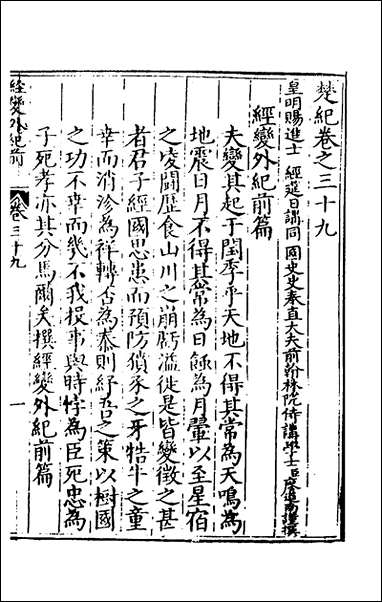 楚紀卷之三十九
皇明賜進士 經筵日講同 國史奉直大夫前翰林院侍講學士臣廖道南謹撰
經變外紀前篇
夫變其起于閏季乎天地不得其常為天鳴為
地震日月不得其常為日蝕為月暈以至星宿
之凌鬪歷食山川之崩竭溢徙是皆變徵之甚
者君子經國思患而預防僨豕之牙牿牛之童
幸而消沴為祥轉否為泰則紓吾之策以樹國
之功不幸而幾不我投事與時悖為臣死忠為
子死孝亦其分焉爾矣撰經變外紀前篇
經變外紀前 卷三十九 一